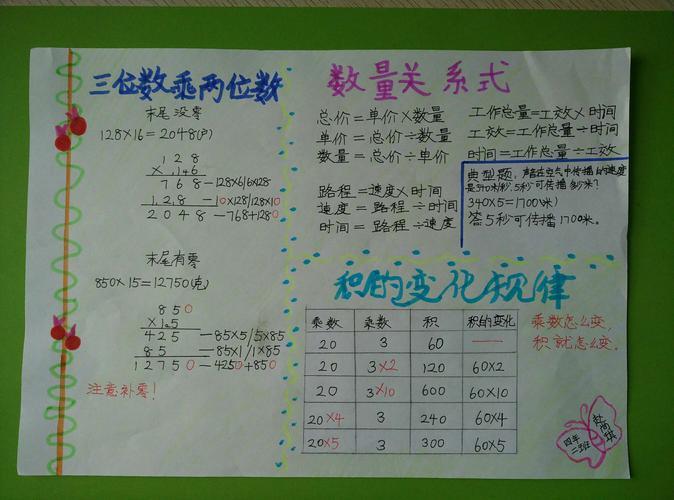 三位数乘两位数
末尾没零
128×16=2048(户)
128
×16
768—128×6/6×128
128—10×128/128×10
2048—768+1280
末尾有零
850×15=12750(克)
850
×15
425—85×5/5×85
85—85×1/1×85
12750—4250+850
注意补零!
数量关系式
总价=单价×数量
单价=总价÷数量
数量=总价÷单价
路程=速度×时间
速度=路程÷时间
时间=路程÷速度
工作总量=工效×时间
工效=工作总量÷时间
时间=工作总量÷工效
典型题,声音在空气中传播的速度
是340米/秒,5秒可传播多少米?
340×5=1700(米)
答5秒可传播1700米。
积的变化规律
乘数 乘数 积 积的变化
20 3 60 —
20 3×2 120 60×2
20 3×10 600 60×10
20×4 3 240 60×4
20×5 3 300 60×5
乘数怎么变,
积就怎么变。
四年
二班